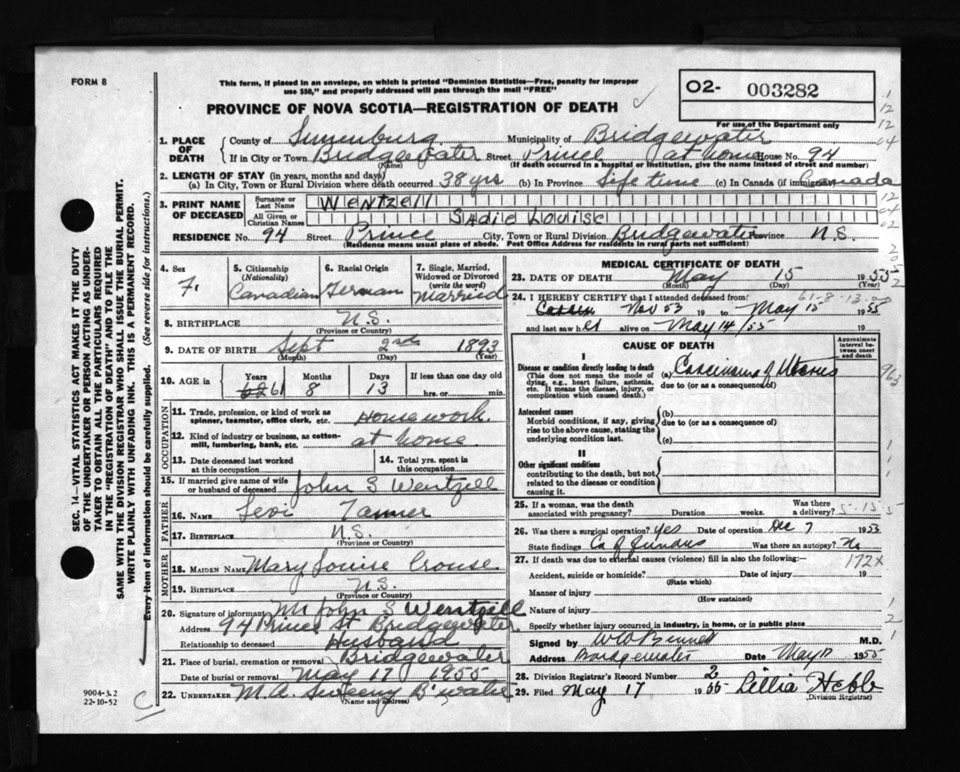 FORM 8
This form, if placed in an envelope, on which is printed "Dominion Statistics—Free, penalty for improper
use $50," and properly addressed will pass through the mail "FREE"
PROVINCE OF NOVA SCOTIA—REGISTRATION OF DEATH
02- 003282
For use of the Department only
1. PLACE OF DEATH
County of Lunenburg Municipality of Bridgewater
If in City or Town Bridgewater Street Prince at home House No. 94
(Name) (If death occurred in a hospital or institution, give the name instead of street and number)
2. LENGTH OF STAY (in years, months and days)
(a) In City, Town or Rural Division where death occurred 38 yrs (b) In Province Life time (c) In Canada (if immigrant) Canada
3. PRINT NAME OF DECEASED
Surname or Last Name Wentzell
All Given or Christian Names Sadie Louise
RESIDENCE No. 94 Street Prince City, Town or Rural Division Bridgewater Province N.S.
(Residence means usual place of abode. Post Office Address for residents in rural parts not sufficient)
4. Sex
F.
5. Citizenship
(Nationality)
Canadian
6. Racial Origin
German
7. Single, Married, Widowed or Divorced
(write the word)
Married
8. BIRTHPLACE N.S.
(Province or Country)
9. DATE OF BIRTH Sept 2nd 1893
(Month) (Day) (Year)
10. AGE in
Years Months Days If less than one day old
61 8 13 hrs. or min.
OCCUPATION
11. Trade, profession, or kind of work as
spinner, teamster, office clerk, etc. Housework
12. Kind of industry or business, as cotton-
mill, lumbering, bank, etc. at home
13. Date deceased last worked
at this occupation
14. Total yrs. spent in
this occupation
15. If married give name of wife
or husband of deceased John S Wentzell
FATHER
16. NAME Levi Tanner
17. BIRTHPLACE N.S.
(Province or Country)
MOTHER
18. MAIDEN NAME Mary Louise Crouse
19. BIRTHPLACE N.S.
(Province or Country)
20. Signature of informant Mr John S Wentzell
Address 94 Prince St Bridgewater
Relationship to deceased Husband
21. Place of burial, cremation or removal Bridgewater
Date of burial or removal May 17 1955
22. UNDERTAKER M.A. Sweeny B'water
(Name and address)
MEDICAL CERTIFICATE OF DEATH
23. DATE OF DEATH May 15 1955
(Month) (Day) (Year)
24. I HEREBY CERTIFY that I attended deceased from: 61-8-13
Nov 53 19 to May 15 1955
and last saw her alive on May 14/55 19
CAUSE OF DEATH
Approximate interval between onset and death
I
Disease or condition directly leading to death
(This does not mean the mode of
dying, e.g., heart failure, asthenia,
etc. It means the disease, injury, or
complication which caused death.)
(a) Carcinoma of Uterus
due to (or as a consequence of)
Antecedent causes
Morbid conditions, if any, giving
rise to the above cause, stating the
underlying condition last.
(b)
due to (or as a consequence of)
(c)
II
Other significant conditions
contributing to the death, but not
related to the disease or condition
causing it.
25. If a woman, was the death
associated with pregnancy? Duration weeks. Was there a delivery?
5-15-5
26. Was there a surgical operation? Yes Date of operation Dec 7 1953
State findings Ca of Was there an autopsy? No
27. If death was due to external causes (violence) fill in also the following:— 172X
Accident, suicide or homicide? Date of injury 19
(State which)
Manner of injury
(How sustained)
Nature of injury
Specify whether injury occurred in industry, in home, or in public place
Signed by W W Bennett M.D.
Address Bridgewater Date May 17 1955
28. Division Registrar's Record Number 2
29. Filed May 17 1955 Lillia Hebb
(Division Registrar)
SEC. 14—VITAL STATISTICS ACT MAKES IT THE DUTY
OF THE UNDERTAKER OR PERSON ACTING AS UNDER-
TAKER TO OBTAIN ALL THE PARTICULARS REQUIRED
IN THE "REGISTRATION OF DEATH" AND TO FILE THE
SAME WITH THE DIVISION REGISTRAR WHO SHALL ISSUE THE BURIAL PERMIT.
WRITE PLAINLY WITH UNFADING INK. THIS IS A PERMANENT RECORD.
Every item of information should be carefully supplied. (See reverse side for instructions.)
9004-3.2
22-10-52
C